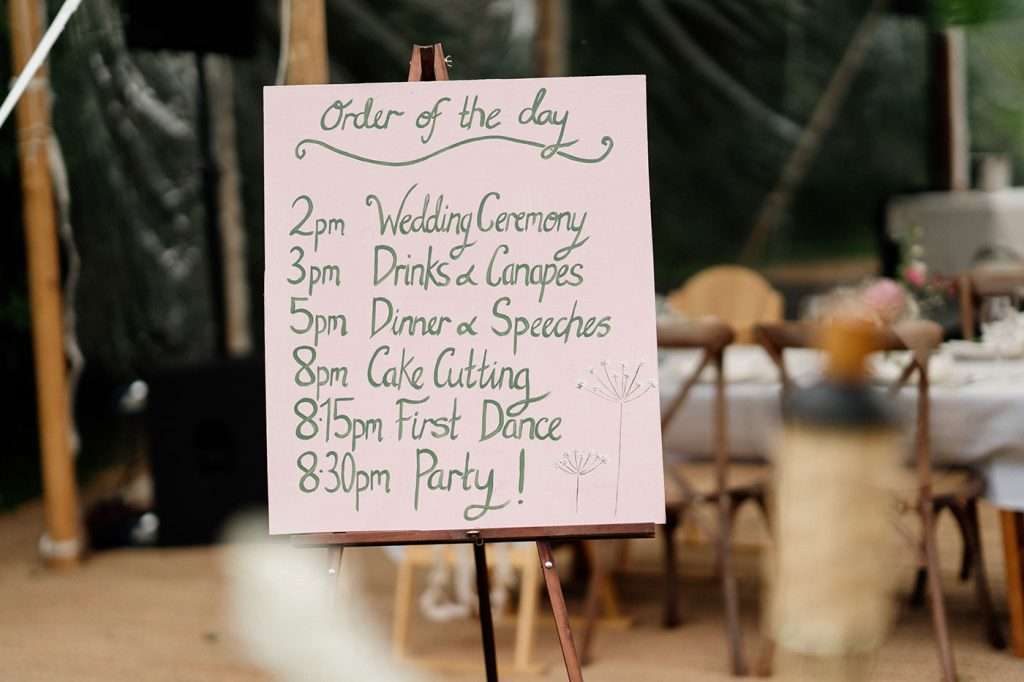 Order of the day
2pm Wedding Ceremony
3pm Drinks & Canapes
5pm Dinner & Speeches
8pm Cake Cutting
8:15pm First Dance
8:30pm Party!